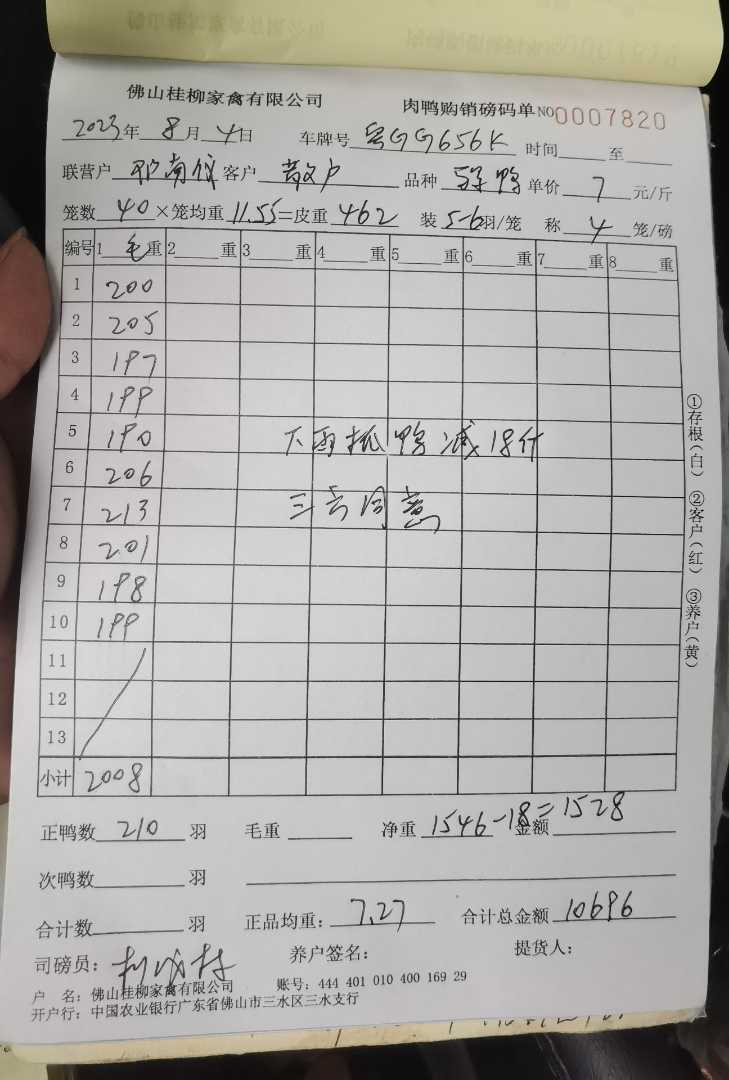 佛山桂柳家禽有限公司 肉鸭购销磅码单 NO 0007820
2023年 8月 4日 车牌号 粤GG656K 时间 至
联营户 邓南 客户 散户 品种 鸭 单价 7 元/斤
笼数 40 ×笼均重 11.55=皮重 462 装 5-6羽/笼 称 4 笼/磅
编号 1 毛 重 2 重 3 重 4 重 5 重 6 重 7 重 8 重
1 200
2 205
3 197
4 199
5 190 下雨抓鸭减18斤
6 206
7 213 三方同意
8 201
9 198
10 199
11
12
13
小计 2008
正鸭数 210 羽 毛重 净重 1546-18=1528 金额
次鸭数 羽
合计数 羽 正品均重: 7.27 合计总金额 10696
司磅员: 养户签名: 提货人:
户 名: 佛山桂柳家禽有限公司 账号: 444 401 010 400 169 29
开户行: 中国农业银行广东省佛山市三水区三水支行
①存根(白) ②客户(红) ③养户(黄)